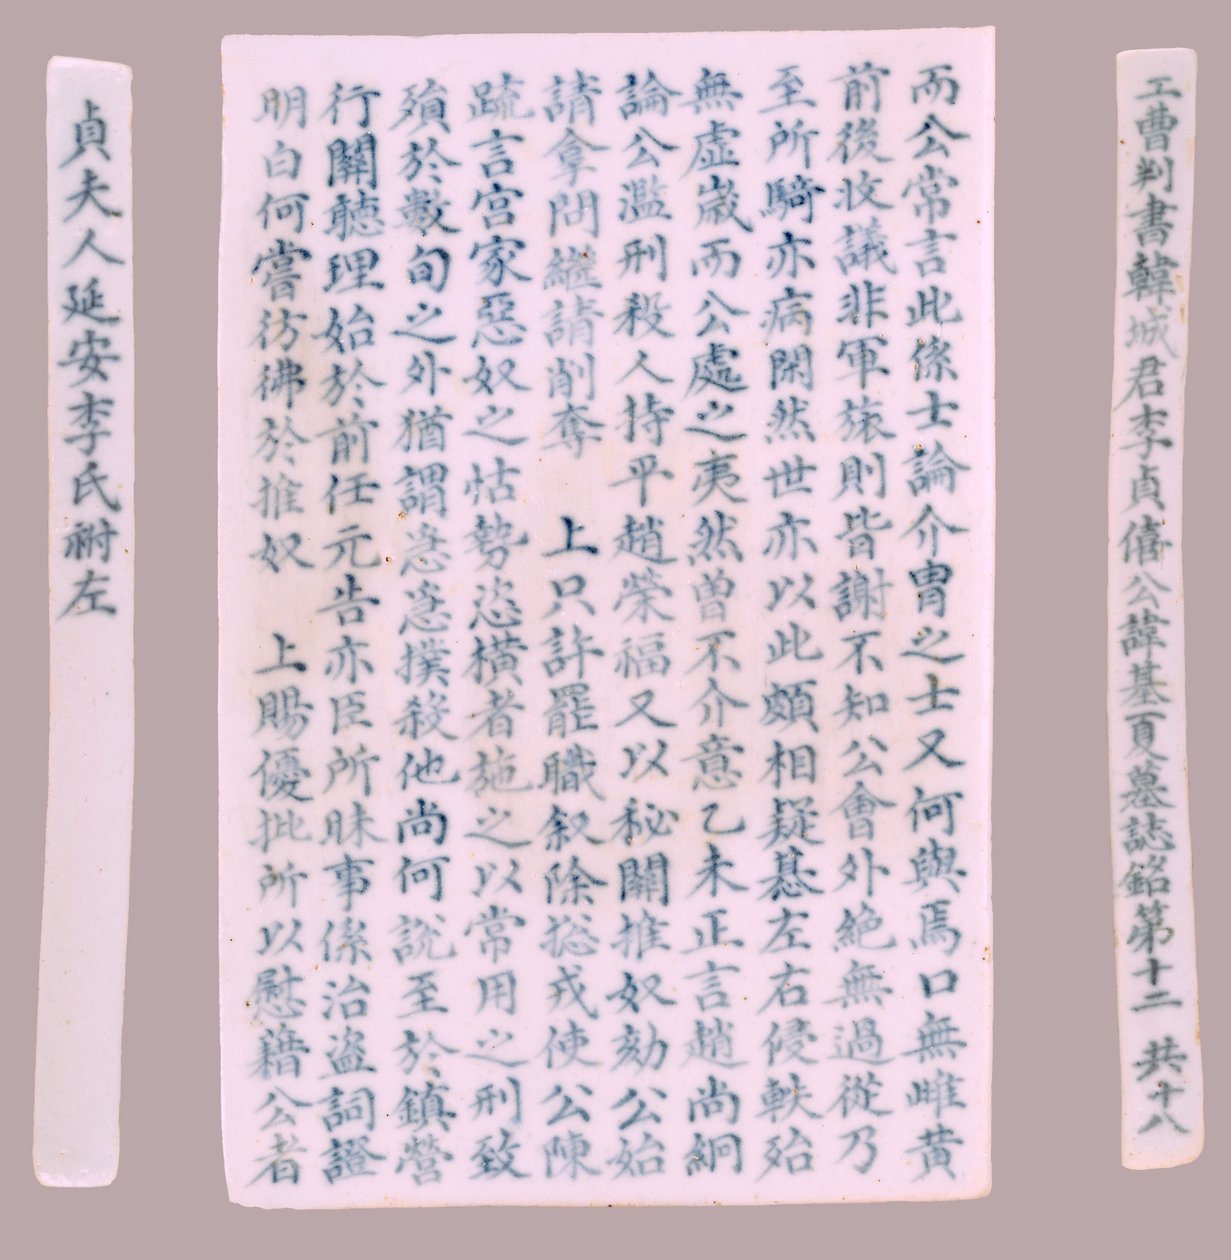 工曹判書韓城君李貞僖公諱基夏墓誌銘第十二 共十八
而公常言此係士論介冑之士又何與焉口無雌黃
前後收議非軍旅則皆謝不知公會外絶無過從乃
至所騎亦病閑然世亦以此頗相疑惎左右侵軼殆
無虛歲而公處之夷然曾不介意乙未正言趙尚絅
論公濫刑殺人持平趙榮福又以秘關推奴劾公始
請拿問繼請削奪 上只許罷職叙除摠戎使公陳
疏言宮家惡奴之怙勢恣橫者施之以常用之刑致
殞於數旬之外猶謂恣意撲殺他尚何說至於鎮營
行關聽理始於前任元告亦臣所昧事係治盜詞證
明白何嘗彷彿於推奴 上賜優批所以慰藉公者
貞夫人延安李氏祔左